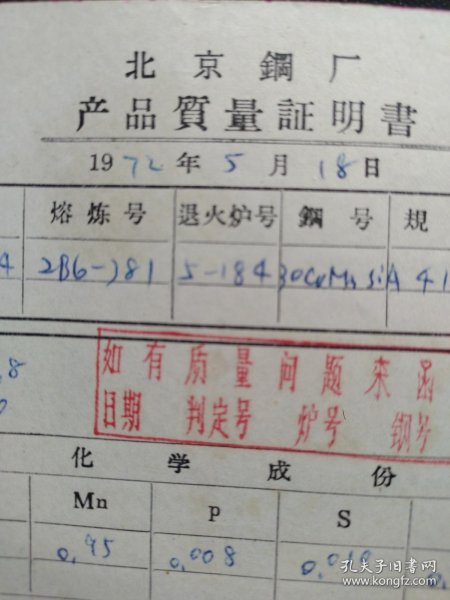 北京鋼厂
产品質量証明書
1972年5月18日
熔炼号 退火炉号 鋼号 規
4 2B6-781 5-184 30CrMnSiA 41
如有质量问题来函
日期 判定号 炉号 钢号
化学成份
Mn P S
0.95 0.008 0.018
孔夫子旧书网
www.kongfz.com